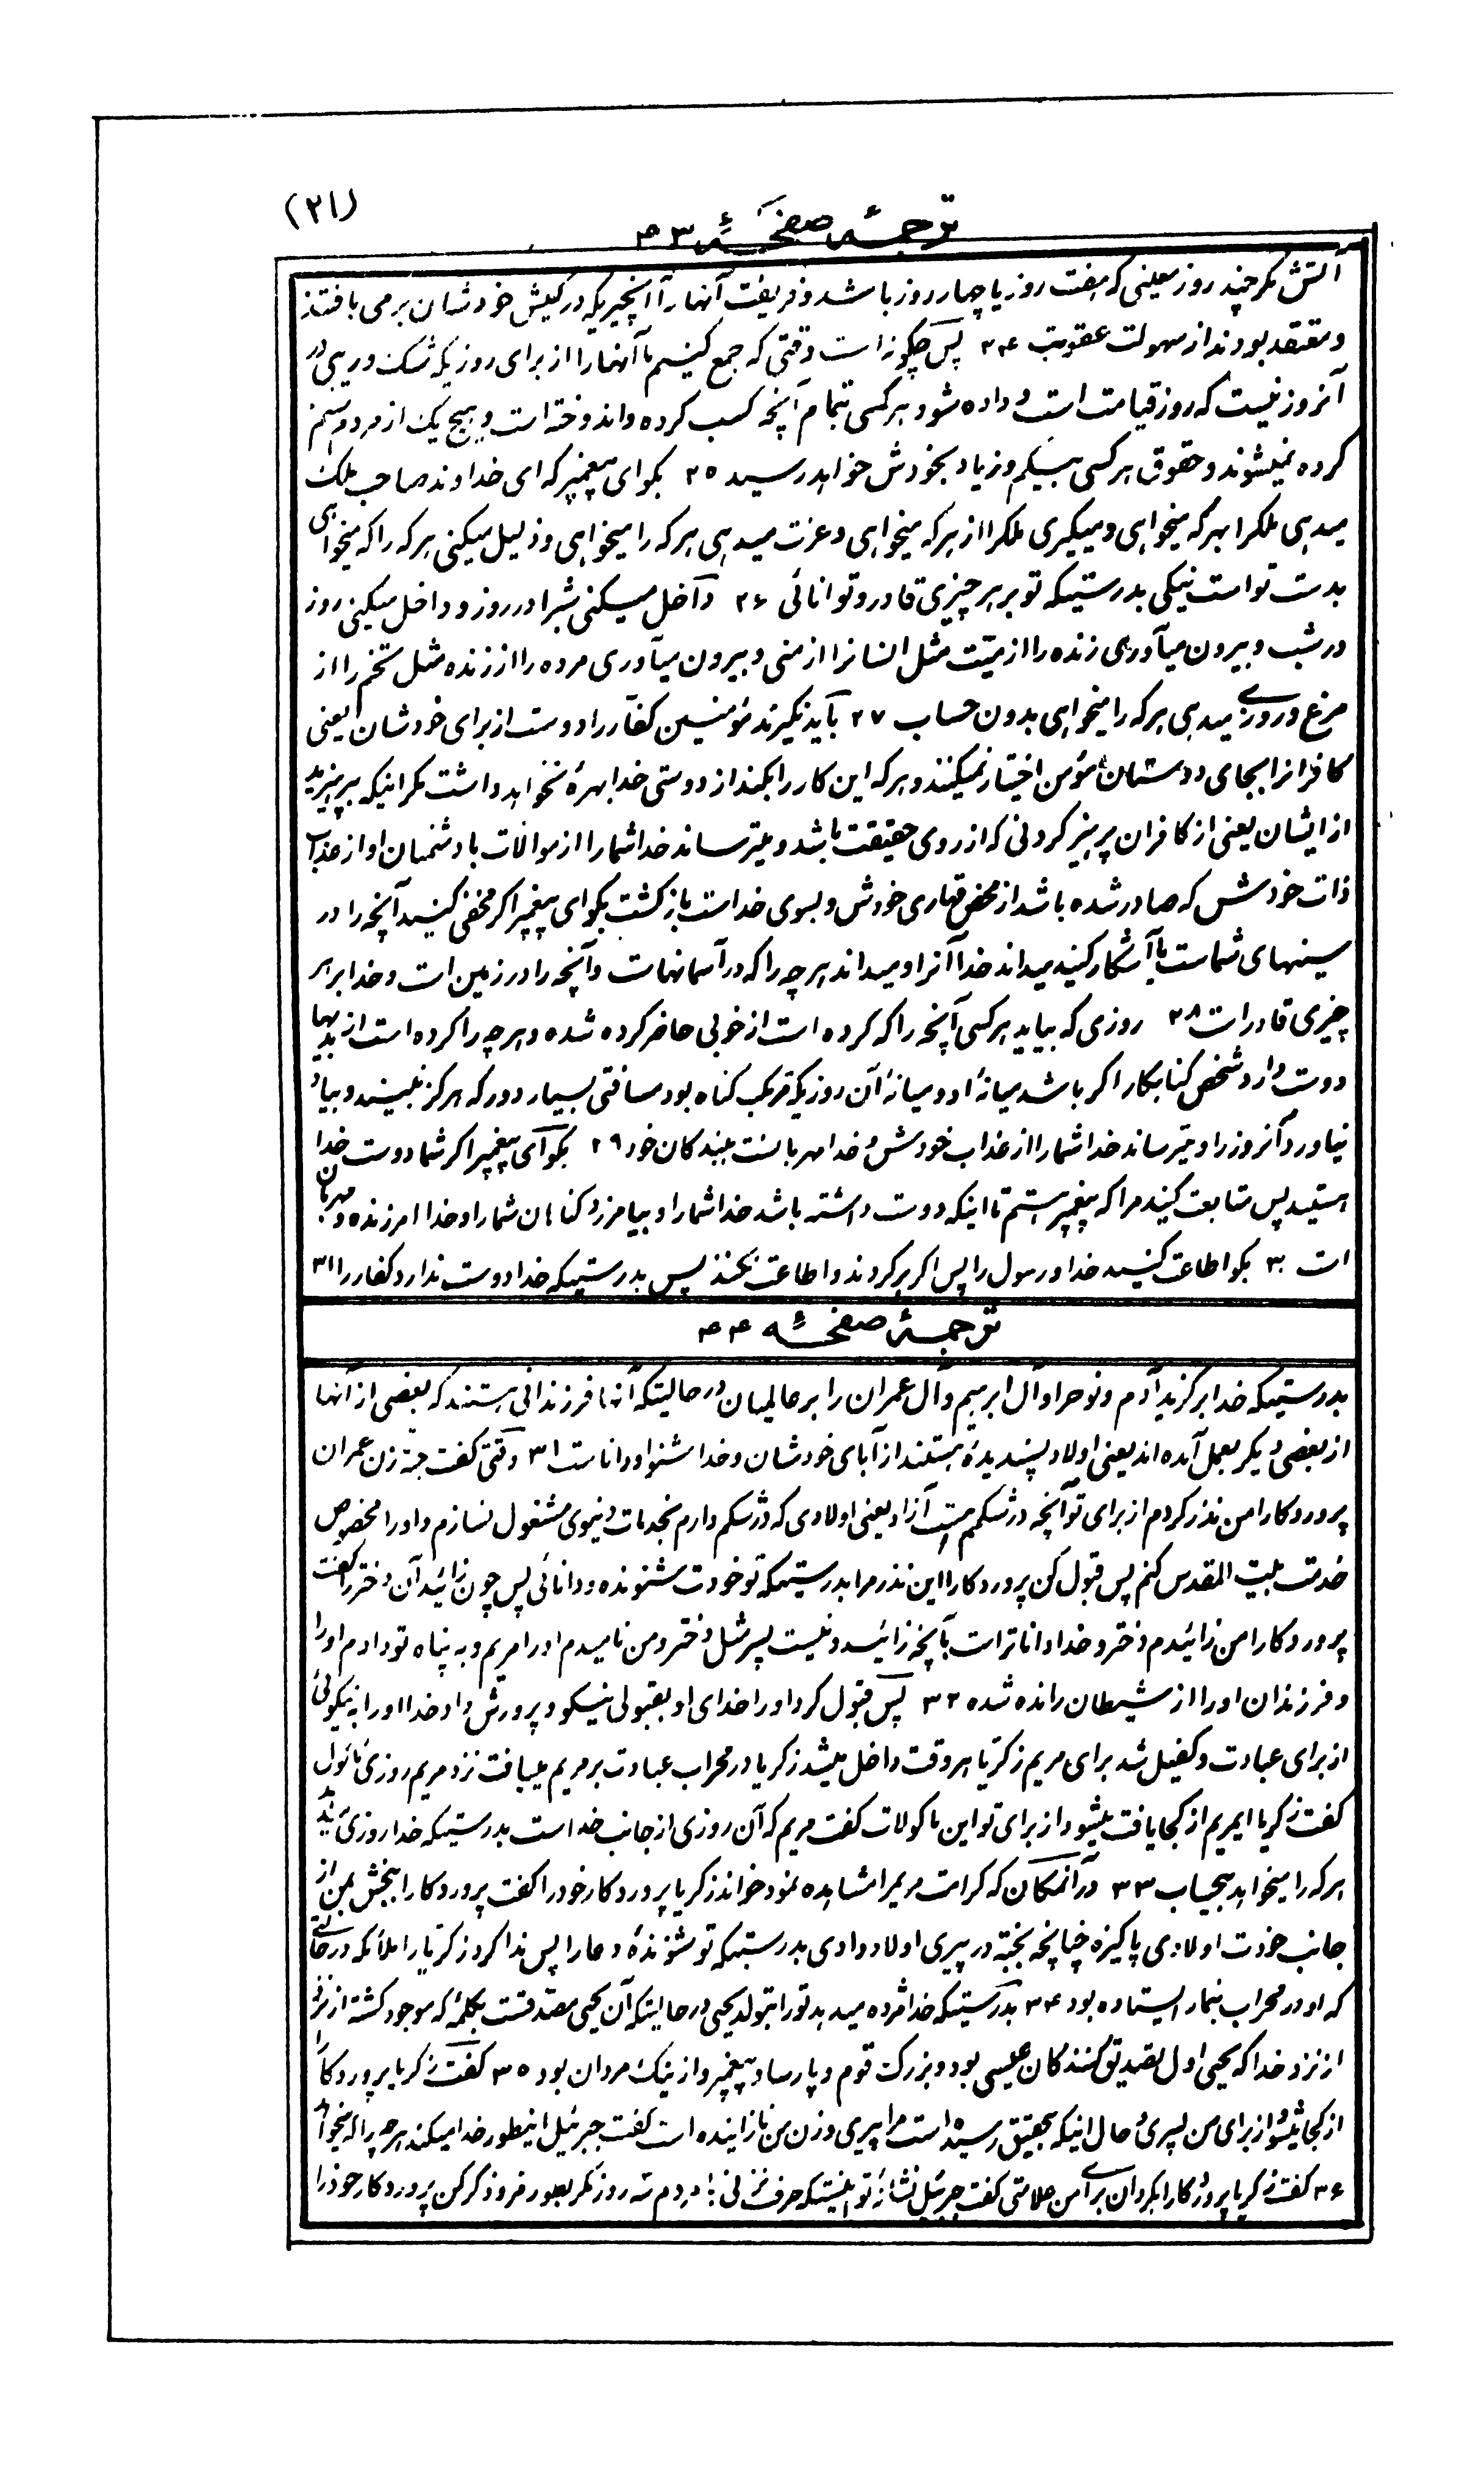 (۲۱)
ترجمهٔ صفحهٔ ۴۳
آتش مگر چند روز معینی که هفت روز یا چهار روز باشد و فریفت آنها را آنچیزیکه در کیش خودشان بر می بافتند
و معتقد بودند از سهولت عقوبت ۲۴ پس چگونه است وقتی که جمع کنیم ما آنهارا از برای روزیکه شک و ریبی در
آنروز نیست که روز قیامت است و داده شود هر کسی تمام آنچه کسب کرده و اندوخته است و هیچ یک از مردم ستم
کرده نمیشوند و حقوق هر کسی بیکم و زیاد بخودش خواهد رسید ۲۵ بگو ای پیغمبر که ای خداوند صاحب ملک
میدهی ملکرا بهر که میخواهی و میگیری ملکرا از هر که میخواهی و عزت میدهی هر که را میخواهی و ذلیل میکنی هر که را که میخواهی
بدست تو است نیکی بدرستیکه تو بر هر چیزی قادر و توانائی ۲۶ داخل میکنی شبرا در روز و داخل میکنی روز
در شب و بیرون میآوری زنده را از میّت مثل انسانرا از منی و بیرون میآوری مرده را از زنده مثل تخم را از
مرغ و روزی میدهی هر که را میخواهی بدون حساب ۲۷ باید نگیرند مؤمنین کفّار را دوست از برای خودشان یعنی
کافرانرا بجای دوستان مؤمن اختیار نمیکنند و هر که این کار را بکند از دوستی خدا بهرهٔ نخواهد داشت مگر اینکه بپرهیزید
از ایشان یعنی از کافران پرهیز کردنی که از روی حقیقت باشد و میترساند خدا شما را از موالات با دشمنان او از عذاب
ذات خودش که صادر شده باشد از محض قهاری خودش و بسوی خداست بازگشت بگو ای پیغمبر اگر مخفی کنید آنچه را در
سینهای شماست یا آشکار کنید میداند خدا آنرا و میداند هر چه را که در آسمانهاست و آنچه را در زمین است و خدا بر هر
چیزی قادر است ۲۸ روزی که بیابد هر کسی آنچه را که کرده است از خوبی حاضر کرده شده و هر چه را کرده است از بدیها
دوست دارد شخص گناهکار اگر باشد میانهٔ او و میانهٔ آن روزیکه مرتکب گناه بود مسافتی بسیار دور که هرگز نبیند و بیاد
نیاورد آنروز را و میترساند خدا شما را از عذاب خودش و خدا مهربانست ببندگان خود ۲۹ بگو ای پیغمبر اگر شما دوست خدا
هستید پس متابعت کنید مرا که پیغمبر هستم تا اینکه دوست داشته باشد خدا شما را و بیامرزد گناهان شما را و خدا آمرزنده و مهربان
است ۳۰ بگو اطاعت کنید خدا و رسول را پس اگر برگردند و اطاعت نکنند پس بدرستیکه خدا دوست ندارد کفار را ۳۱
ترجمهٔ صفحهٔ ۴۴
بدرستیکه خدا برگزید آدم و نوحرا و آل ابرهیم و آل عمران را بر عالمیان در حالیتکه آنها فرزندانی هستند که بعضی از آنها
از بعضی دیگر بعمل آمده اند یعنی اولاد پسندیدهٔ هستند از آبای خودشان و خدا شنوا و داناست ۳۱ وقتی گفت حنه زن عمران
پروردگارا من نذر کردم از برای تو آنچه در شکمم هست آزاد یعنی اولادی که در شکم دارم بخدمات دنیوی مشغول نسازم و او را مخصوص
خدمت بیت المقدس کنم پس قبول کن پروردگارا این نذر مرا بدرستیکه تو خودت شنونده و دانائی پس چون زائید آن دختر را گفت
پروردگارا من زائیدم دختر و خدا داناتر است بآنچه زائید و نیست پسر مثل دختر و من نامیدم او را مریم و به پناه تو دادم او را
و فرزندان او را از شیطان رانده شده ۳۲ پس قبول کرد او را خدای او بقبولی نیکو و پرورش داد خدا او را به نیکوئی
از برای عبادت و کفیل شد برای مریم زکریّا هر وقت داخل میشد زکریا در محراب عبادت بر مریم مییافت نزد مریم روزی
گفت زکریا ایمریم از کجا یافت میشود از برای تو این ماکولات گفت مریم که آن روزی از جانب خداست بدرستیکه خدا روزی
هر که را میخواهد بیحساب ۳۳ در آنمکان که کرامت مریمرا مشاهده نمود خواند زکریا پروردگار خود را گفت پروردگارا ببخش بمن از
جانب خودت اولادی پاکیزه چنانچه بحنّه در پیری اولاد دادی بدرستیکه تو شنوندهٔ دعا را پس ندا کرد زکریا را ملائکه در حالتی
که او در محراب بنماز ایستاده بود ۳۴ بدرستیکه خدا مژده میدهد تو را بتولد یحیی در حالیتکه آن یحیی مصدقست بکلمهٔ که موجود گشته از نزد
از نزد خدا که یحیی اول تصدیق کنندگان عیسی بود و بزرگ قوم و پارسا و پیغمبر و از نیک مردان بود ۳۵ گفت زکریا پروردگارا
از کجا میشود از برای من پسری و حال اینکه بتحقیق رسیده است مرا پیری و زن من نازاینده است گفت جبرئیل اینطور خدا میکند هر چه را که میخواهد
۳۶ گفت زکریا پروردگارا بگردان برای من علامتی گفت جبرئیل نشانهٔ تو اینستکه حرف نزنی با مردم سه روز مگر بطور رمز و ذکر کن پروردگار خود را